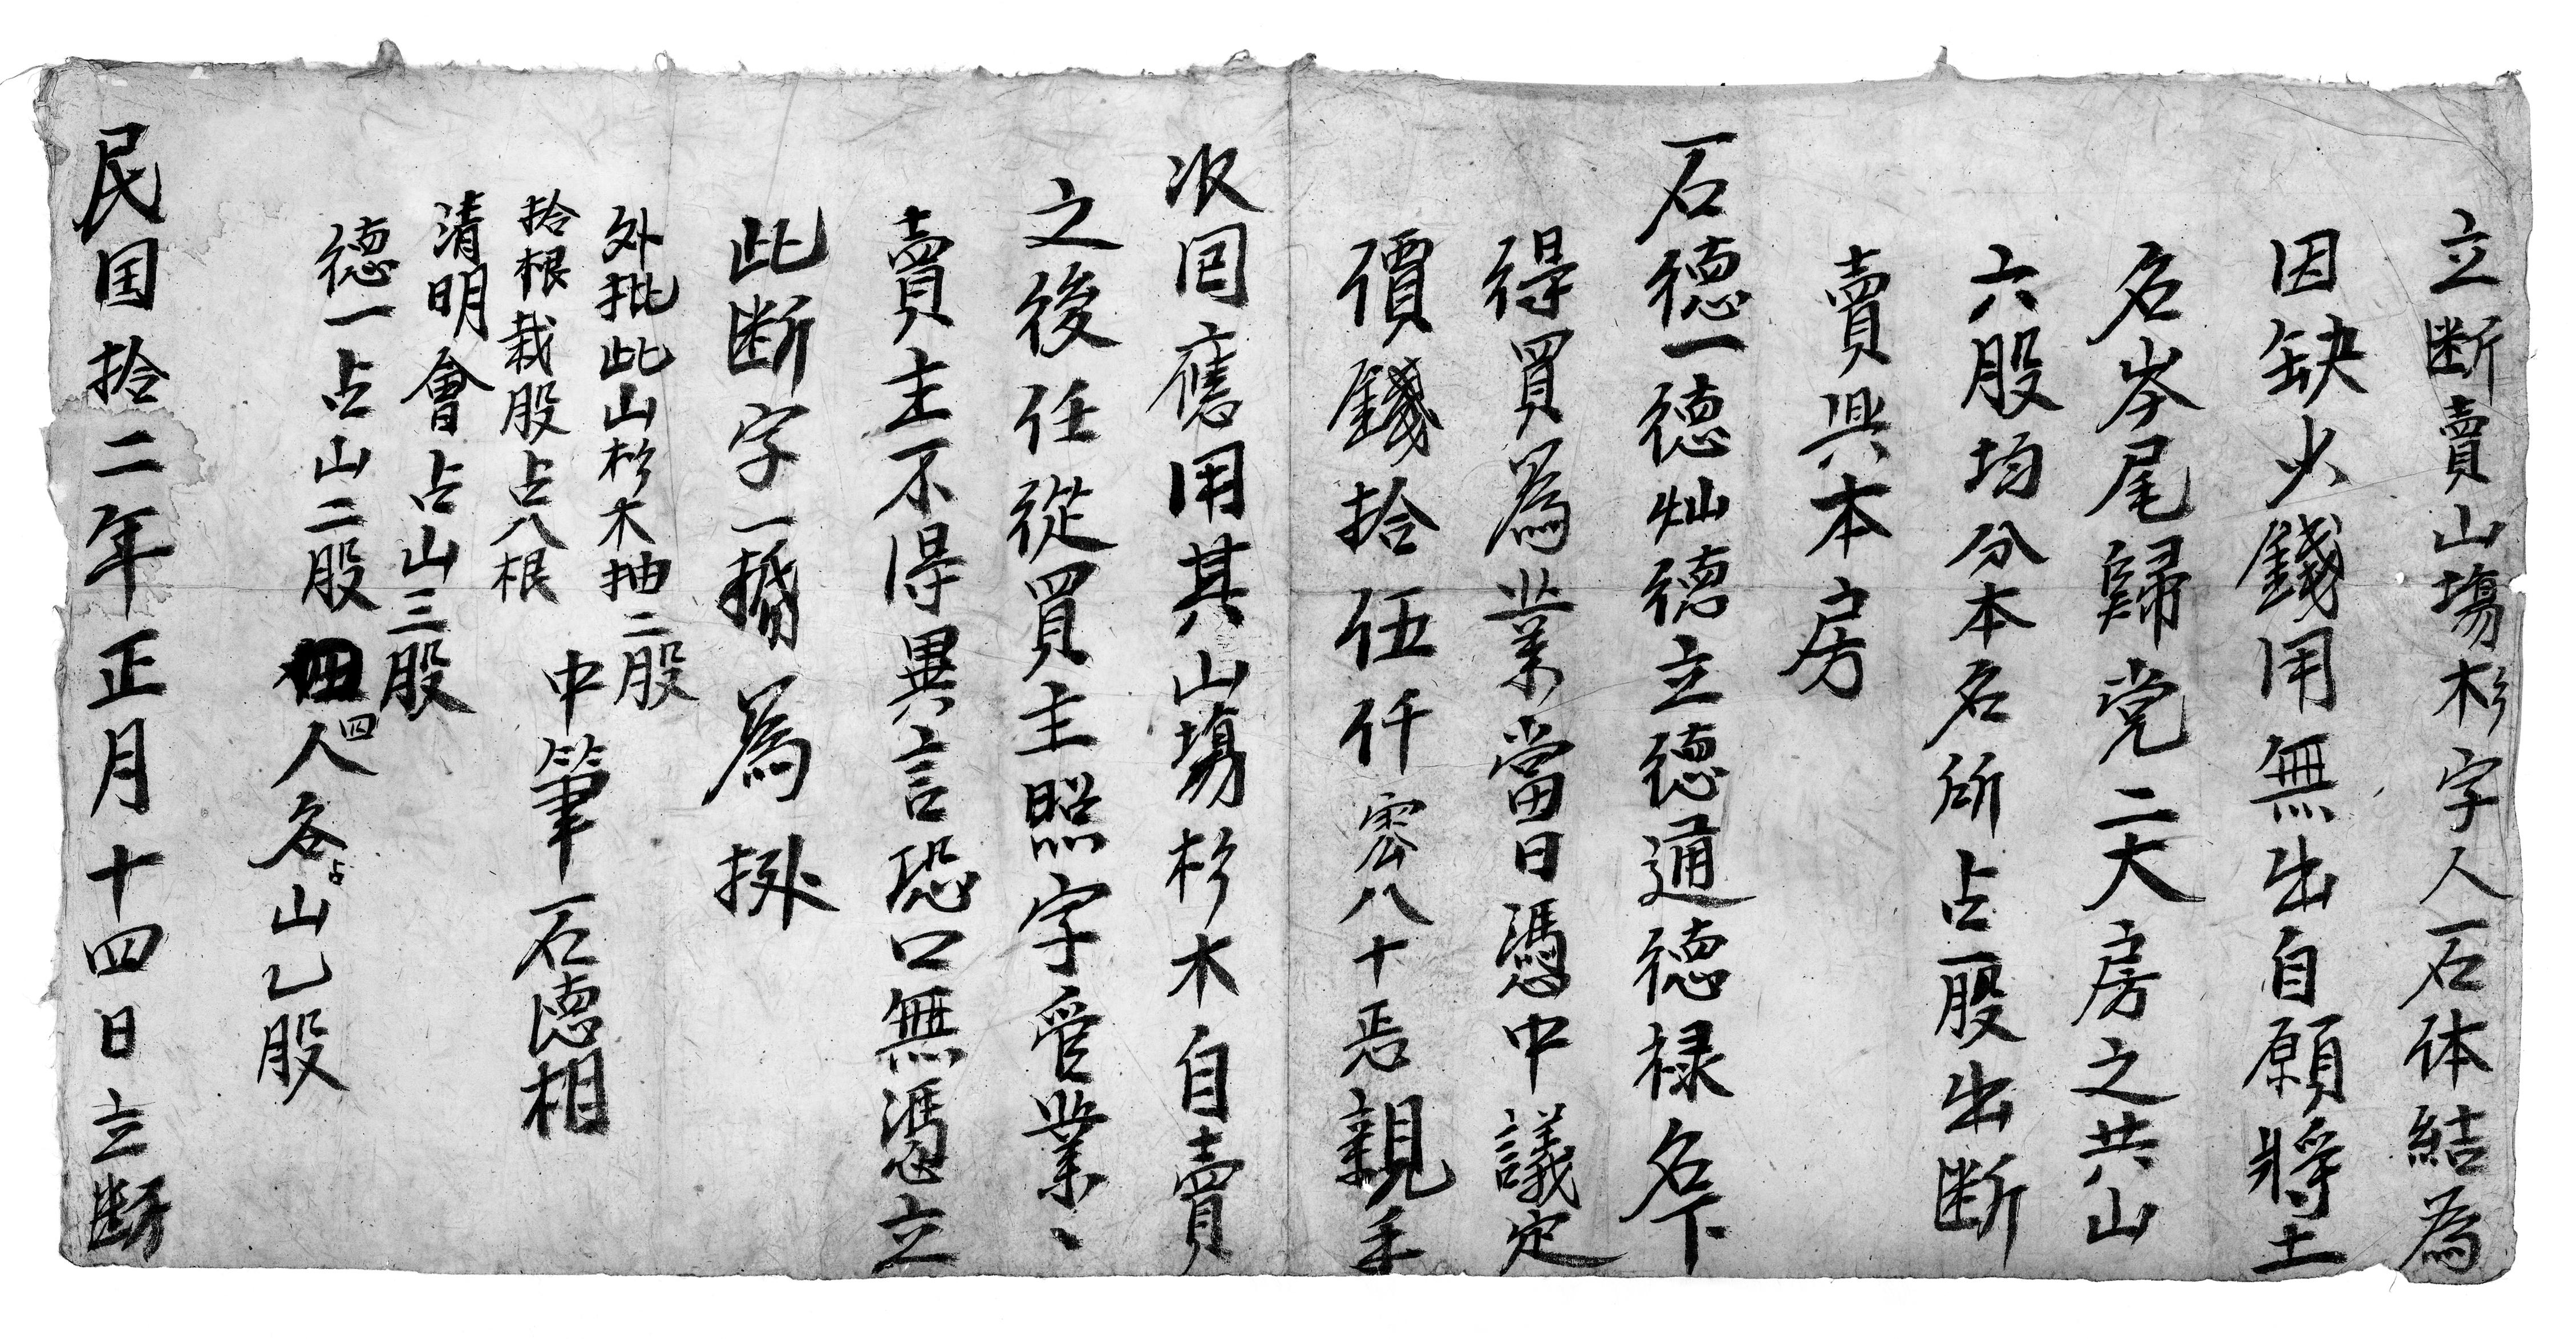 立断賣山塲杉字人石体結為
因缺少錢用無出自願將土
名岑尾歸党二大房之共山
六股均分本名所占一股出断
賣與本房
石德一德灿德立德通德禄名下
得買為業當日憑中議定
價錢拾伍仟零八十文親手
收囘應用其山塲杉木自賣
之後任從買主照字管業、
賣主不得異言恐口無憑立
此断字一㧢為㨿
外批此山杉木抽二股
拾根栽股占八根
中筆石德相
清明會占山三股
德一占山二股四人各占山乙股
民国拾二年正月十四日立断